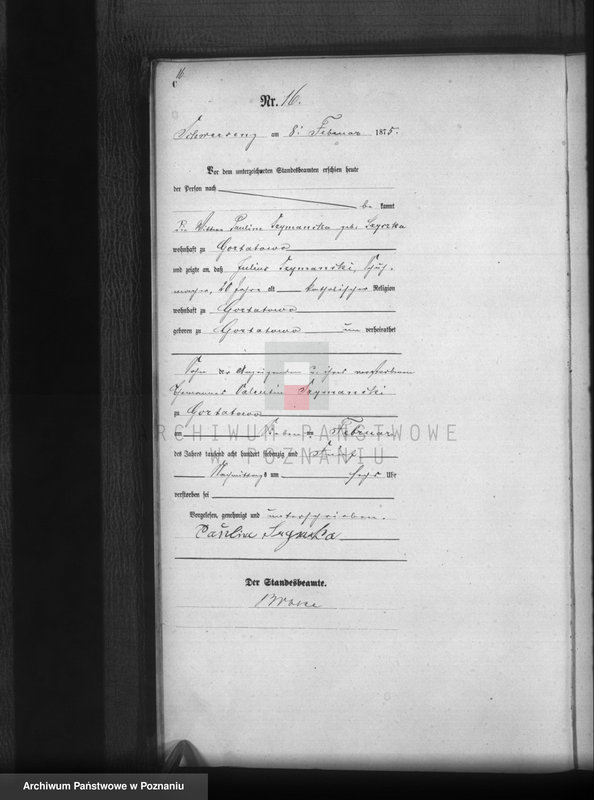 16.
C
Nr. 16.
Schwersenz am 8. Februar 1875.
Vor dem unterzeichneten Standesbeamten erschien heute
der Person nach
be kannt
die Wittwe Pauline Szymanska geb.
wohnhaft zu Gortatowo
und zeigte an, daß Julius Szymanski, Schuh-
macher, 40 Jahre alt katholischer Religion
wohnhaft zu Gortatowo
geboren zu Gortatowo un verheirathet
Sohn der Anzeigenden u. ihres verstorbenen
Ehemannes Valentin Szymanski
zu Gortatowo
am Sieben ten Februar
des Jahres tausend acht hundert siebenzig und fünf
Nachmittags um sechs Uhr
verstorben sei
Vorgelesen, genehmigt und unterschrieben.
Paulina
Der Standesbeamte.
ARCHIWUM PAŃSTWOWE
W POZNANIU
Archiwum Państwowe w Poznaniu